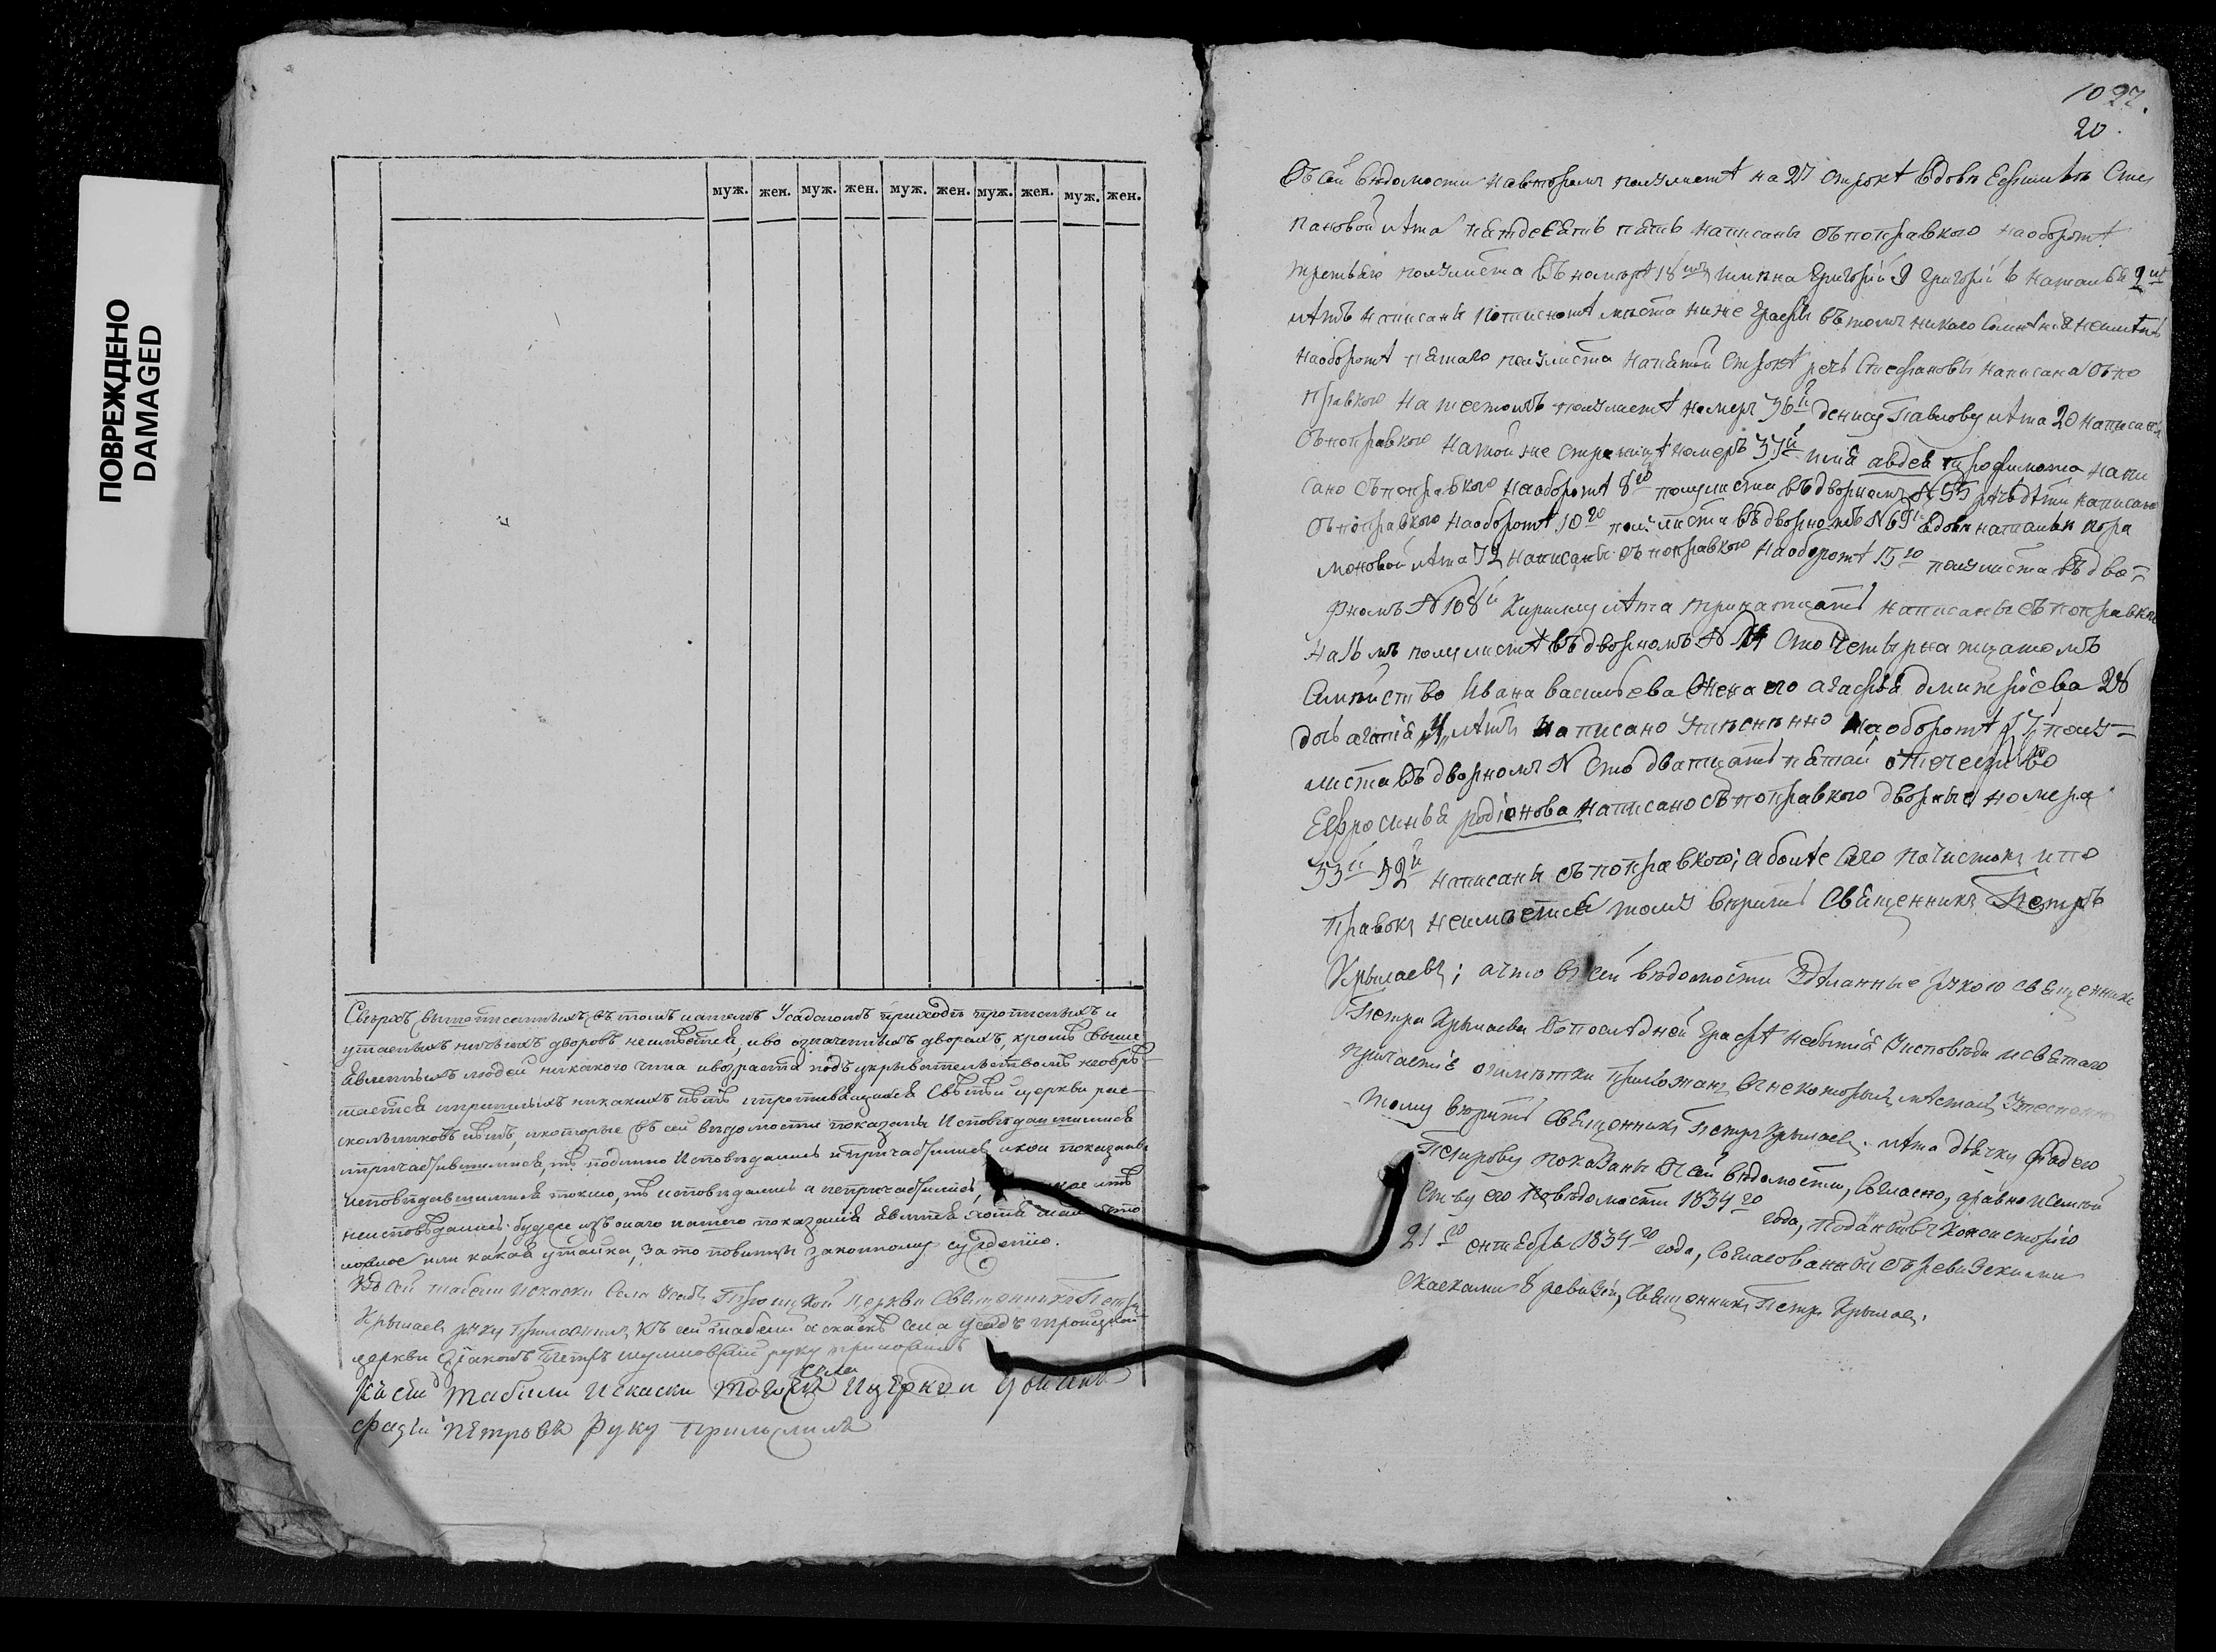 ПОВРЕЖДЕНО
DAMAGED
муж. жен. муж. жен. муж. жен. муж. жен. муж. жен.
Сверхъ вышеписанныхъ въ томъ нашемъ Усадскомъ приходѣ прописныхъ и
утаенныхъ ничьихъ дворовъ неимѣется, и во означенныхъ дворехъ, кромѣ выше
явленныхъ людей никакого чина и возраста подъ укрывательствомъ необрѣ
тается и пришлыхъ никакихъ нѣтъ и противящихся Святѣй церкви рас
кольниковъ нѣтъ, и которые въ сей вѣдомости показаны Исповѣдавшимися
и причастившимися, тѣ подлинно Исповѣдались и причастились, и кои показаны
исповѣдавшимися токмо, тѣ исповѣдались а непричастились,
неисповѣдались. буде изъ онаго нашего показанія явится хотя мало что
ложное или какая утайка, за то повинны законному сужденію.
Къ сей табели и скаски Села Усадъ Троицкой Церкви Священникъ Петръ
Крылаевъ руку приложилъ, къ сей табели и скаскѣ села усадъ троицкой
церкви діаконъ Петръ руку приложилъ
Къ сей табели и скаски тогожъ села и церкви
фадей петровъ руку приложилъ
1027.
20.
Въ сей вѣдомости на второмъ полулистѣ на 27 строкѣ вдовѣ Ефимьѣ Сте
пановой лѣта пятдесятъ пять написаны съ поправкою на оборотѣ
третьяго полулиста въ номерѣ 18мъ Григорій Наталья 2хъ
лѣтъ написаны ниже графы въ томъ никого сомнѣнія неимѣть
на оборотѣ пятаго полулиста на пятой строкѣ рѣчь Стефановы написана съ по
правкою на шестомъ полулистѣ номеръ 36й денису Павлову лѣта 20 написаны
съ поправкою на той же страницѣ номеръ 37й имя авдея трофимова напи
сано съ поправкою на оборотѣ 8го полулиста въ дворномъ N 55 рѣчь дѣти написано
съ поправкою на оборотѣ 10го полулиста въ дворномъ N 69 вдовѣ натальи
лѣта 72 написаны съ поправкою на оборотѣ 15го полулиста въ дво-
рномъ N 108й Кириллу лѣта тринатцать написаны съ поправкою
на 16мъ полулистѣ въ дворномъ N сто четырнатцатомъ
Ивана васильева Жена его агафья дмитріева 26
дочь агапія 4 лѣтъ написано на оборотѣ 17 полу-
листа въ дворномъ N сто дватцать пятой отечество
Ефросинья родіонова написано съ поправкою дворные номера
33й 52й написаны съ поправкою; а болѣе сего почистокъ и по
правокъ неимѣется тому вѣритъ Священникъ Петръ
Крылаевъ; а что въ сей вѣдомости здѣланные рукою священника
Петра Крылаева въ послѣдней графѣ небытія у исповѣди и святаго
причастіе отмѣтки прихожанъ въ некоторыхъ мѣстахъ
тому вѣритъ Священникъ Петръ Крылаевъ. лѣта дьячку фадею
Петрову показаны въ сей вѣдомости, согласно,
его вѣдомости 1834го года, поданной въ консисторію
21го сентября 1834го года, согласованный съ ревизскими
скасками 8 ревизіи, Священникъ Петръ Крылаевъ.